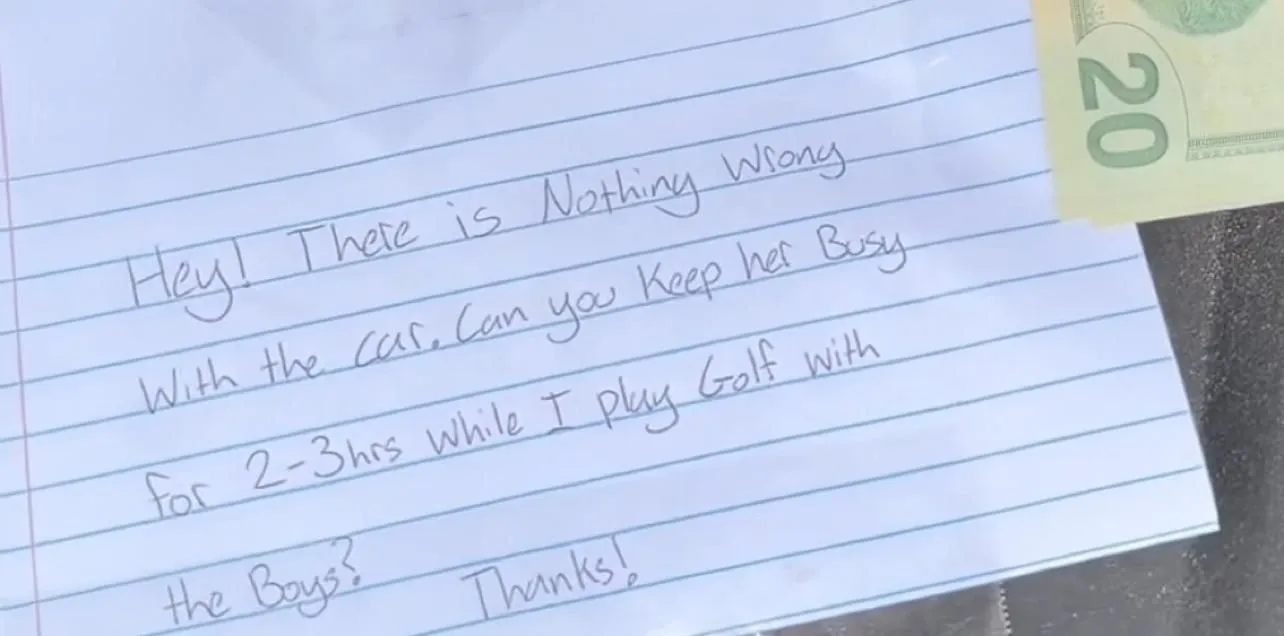 Hey! There is Nothing Wrong
With the car. Can you Keep her Busy
for 2-3hrs while I play Golf with
the Boys? Thanks!
20